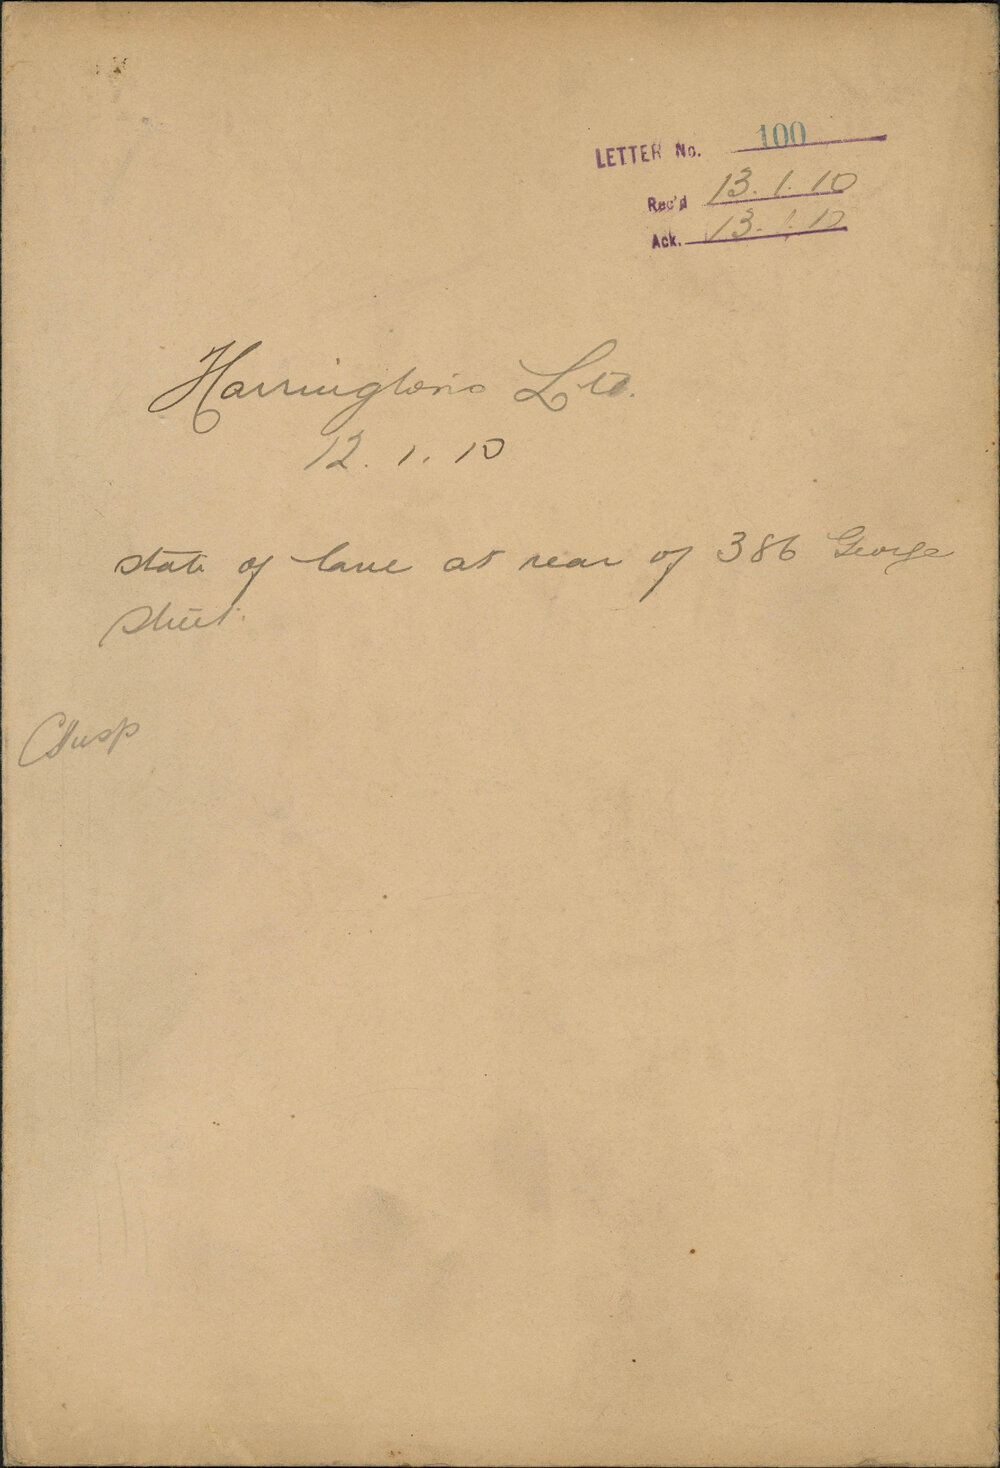 LETTER No. 100
Rec'd 13.1.10
Ack. 13.1.10
Harringtons Ltd.
12.1.10
state of lane at rear of 386 George
Street.